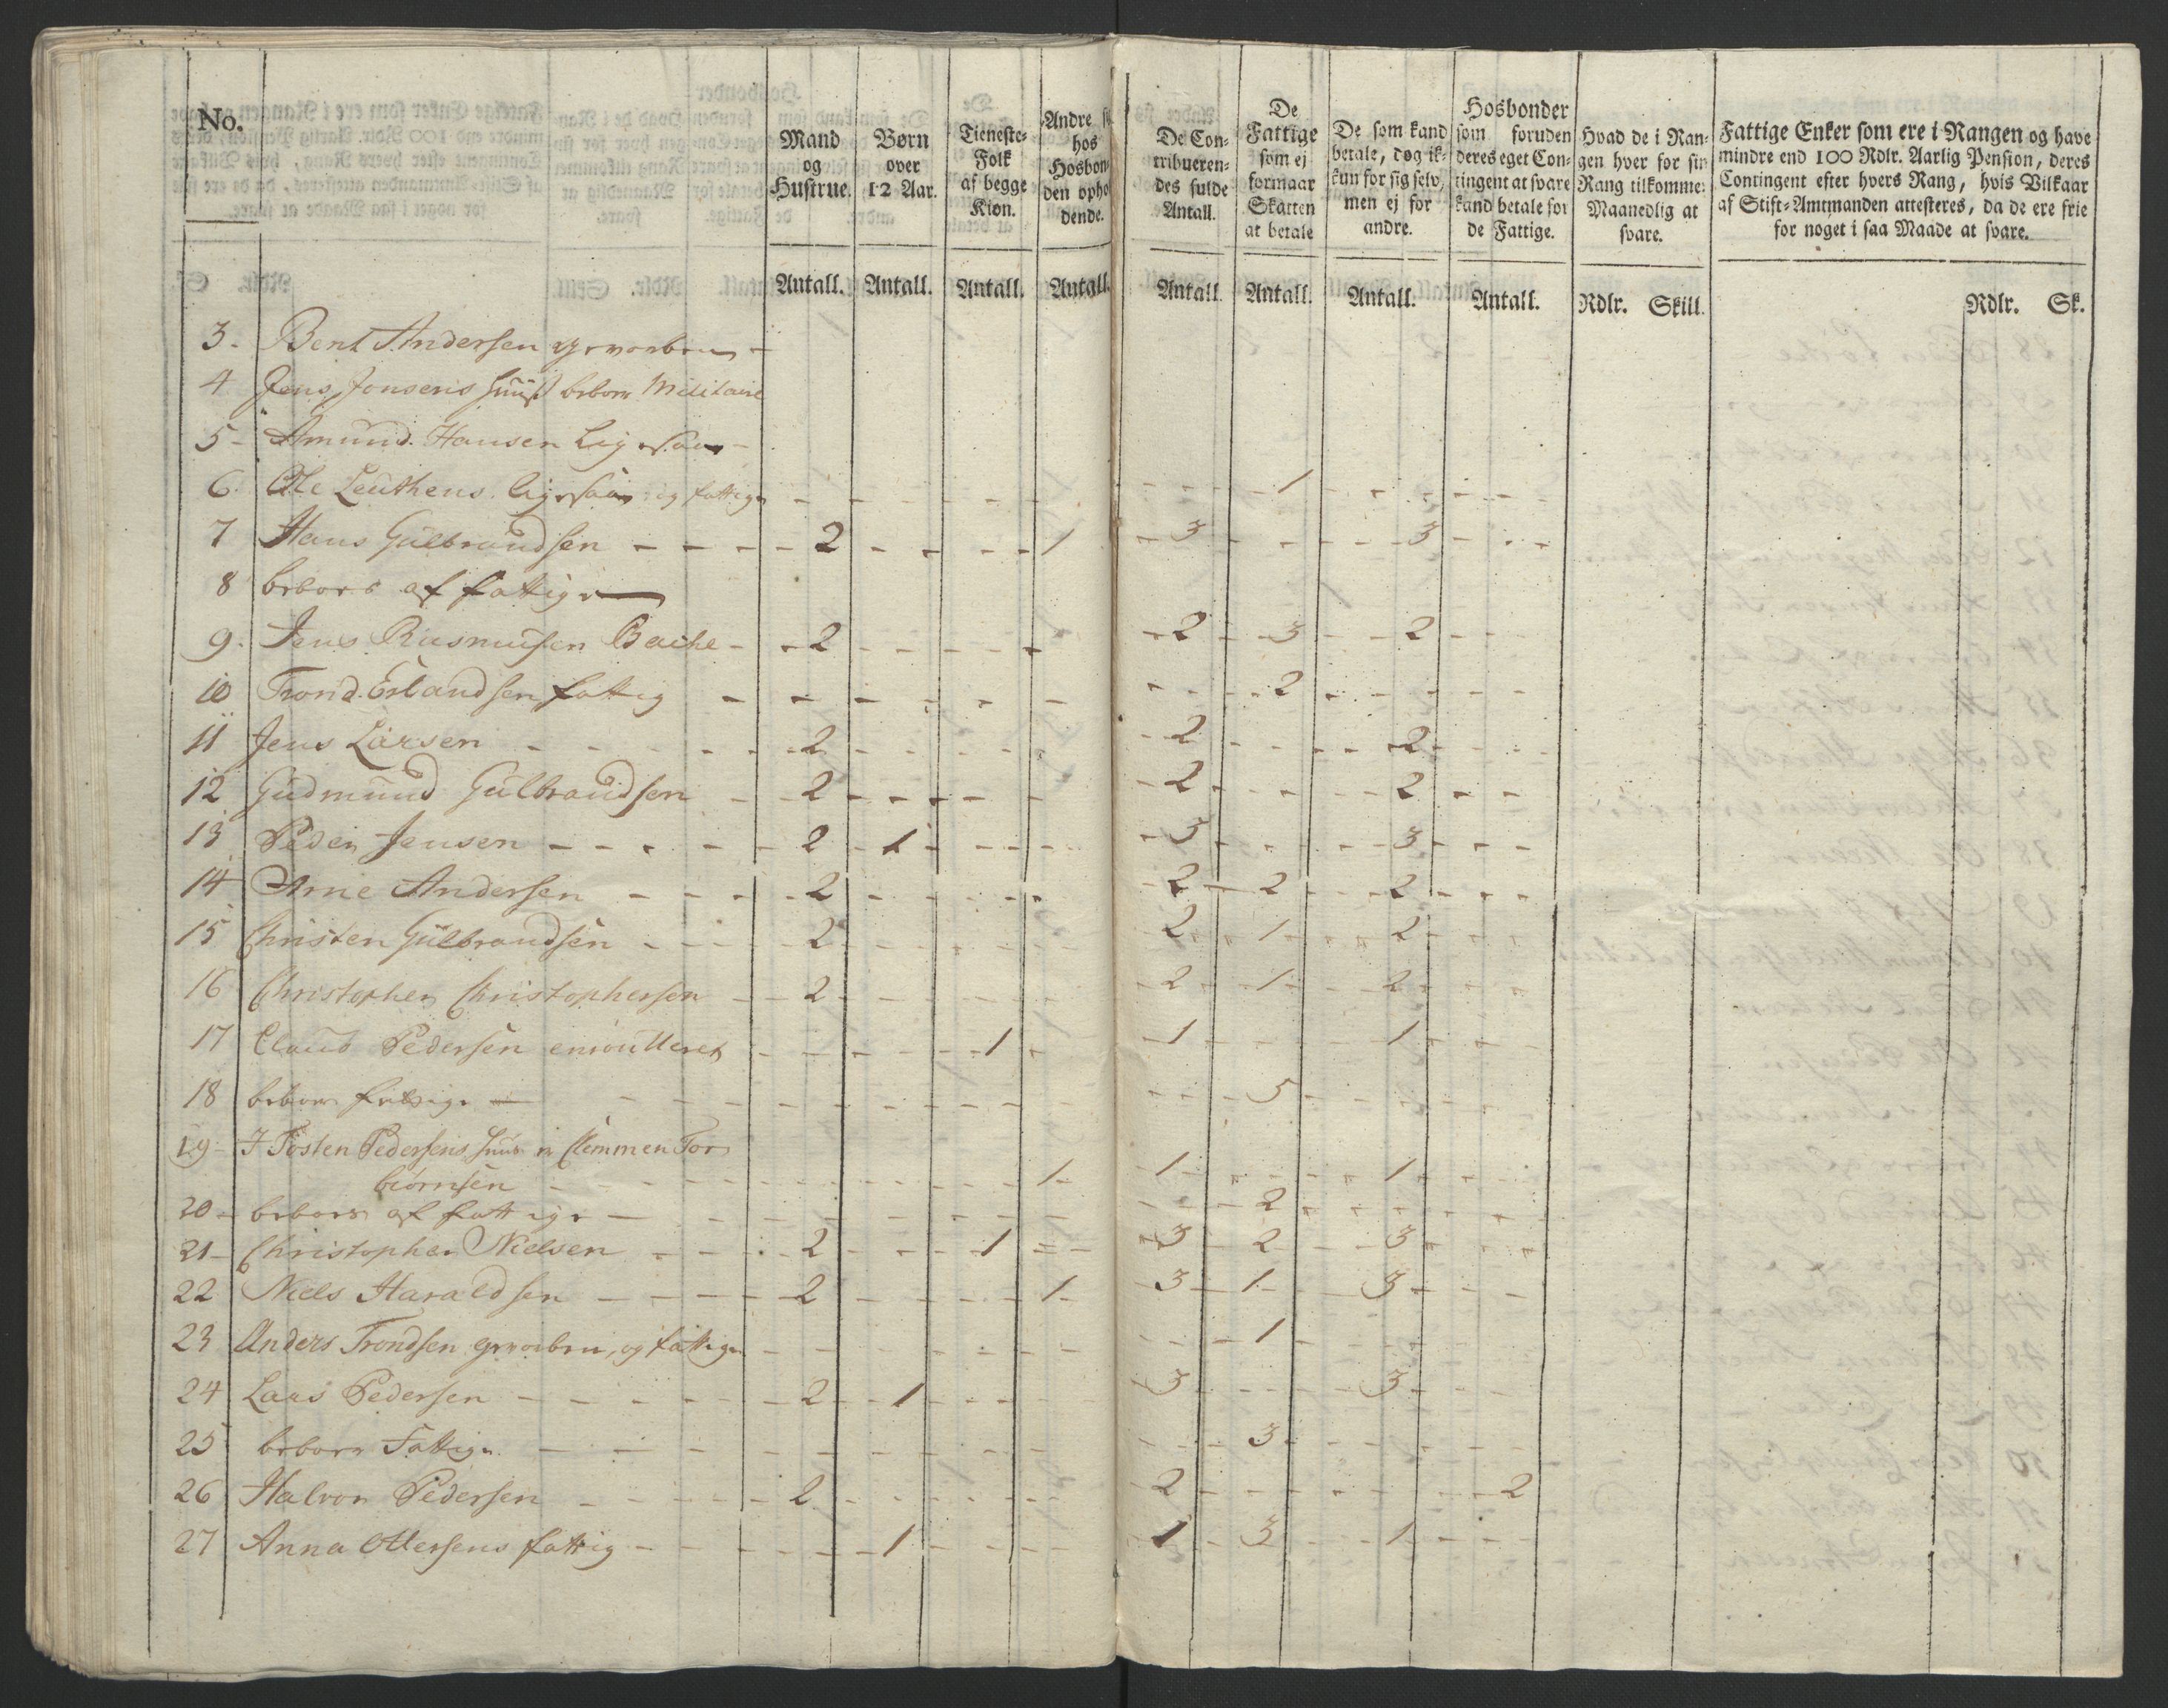 No.
Mand og Hustrue.
Børn over 12 Aar.
Tieneste-Folk af begge Kiøn.
Andre hos Hosbon-den opho-dende.
De Con-tribueren-des fulde Antall.
De Fattige som ej formaar Skatten at betale
De som kand betale, dog ik-kun for sig selv, men ej for andre.
Hosbonder som foruden deres eget Con-tingent at svare kand betale for de Fattige.
Hvad de i Ran-gen hver for sin Rang tilkomme: Maanedlig at svare.
Fattige Enker som ere i Rangen og have mindre end 100 Rdlr. Aarlig Pension, deres Contingent efter hvers Rang, hvis Vilkaar af Stift-Amtmanden attesteres, da de ere frie for noget i saa Maade at svare.
Antall. Antall. Antall. Antall. Antall. Antall. Antall. Antall. Rdlr. Skill. Rdlr. Sk.
3. Bent Andersen gevorben
4 Jens Jonsens Huus beboer Militaire
5 - Amund Hansen ligesaa
6. Ole Leuthens ligesaa og fattig - 1
7 Hans Gulbrandsen - 2 - 1 - 3 - 3
8 beboes af fattige
9. Jens Rasmusen Bache - 2 - 2 - 3 - 2
10 Trond Erlandsen fattig - 2
11 Jens Larsen - 2 - 2 - 2
12 Gudmund Gulbrandsen - 2 - 2 - 2
13 Peder Jensen - 2 - 1 - 3 - 3
14 Arne Andersen - 2 - 2 - 2 - 2
15 Christen Gulbrandsen - 2 - 2 - 1 - 2
16 Christopher Christophersen - 2 - 2 - 1 - 2
17 Claus Pedersen enroulleret - 1 - 1 - 1
18 beboes fattige - 5
19 - I Tosten Pedersens Huus er Clemmen Tor
biørnsen - 1 - 1 - 1
20 - beboes af fattige - 2
21 - Christopher Nielsen - 2 - 1 - 3 - 2 - 3
22 Niels Haraldsen - 2 - 1 - 3 - 1 - 3
23 Anders Trondsen gevorben, og fattig - 1
24 Lars Pedersen - 2 - 1 - 3 - 3
25 beboes Fattige - 3
26 Halvor Pedersen - 2 - 2 - 2
27 Anna Ollersens fattig - 1 - 1 - 3 - 1